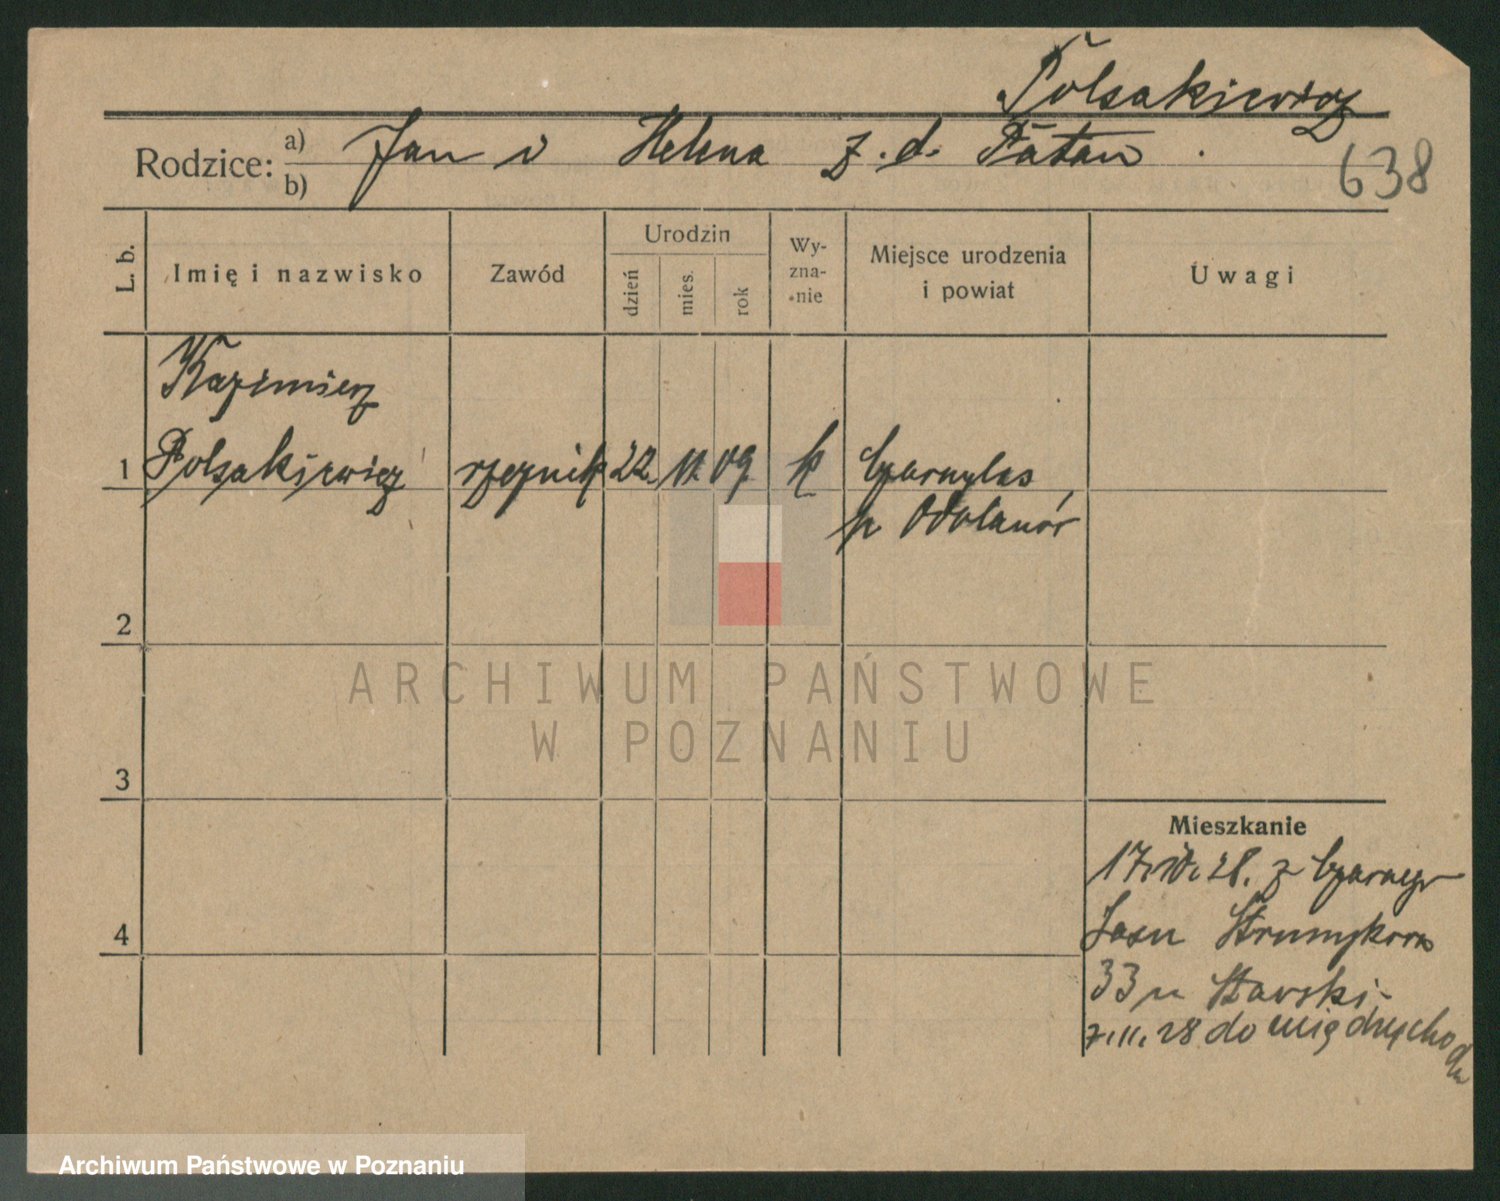 Polsakiewicz
Rodzice: a) b) Jan i Helena z. d.
638
L. b. Imię i nazwisko Zawód Urodzin dzień mies. rok Wyzna-nie Miejsce urodzenia i powiat Uwagi
Kazimierz
1 Polsakiewicz rzeźnik 22. 11. 09. k Czarnylas
p Odolanów
2
ARCHIWUM PAŃSTWOWE
W POZNANIU
3
Mieszkanie
28. z Czarnego
4
Lasu
33 u
7.11.28 do Międzychodu
Archiwum Państwowe w Poznaniu